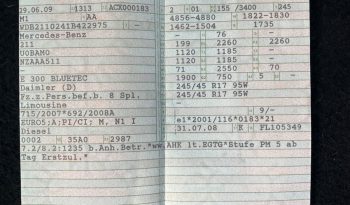 29.06.09 1313 ACX000183
M1 AA
WDB2110241B422975 -
Mercedes-Benz
211
UOBAMO
NZAAA511
E 300 BLUETEC
Daimler (D)
Fz.z.Pers.bef.b. 8 Spl.
Limousine
715/2007*692/2008A
EURO5;A;PI/CI; M, N1 I
Diesel
0002 35A0 2987
2 01 155 /3400 245
4856-4880 1822-1830
1462-1504 1735
- 76 -
199 2260 2260
1120 1185 -
1120 1185 -
71 2550 70
1900 750 5 -
245/45 R17 95W
245/45 R17 95W
-
- 9/-
e1*2001/116*0183*21
31.07.08 K FL105349
7.2/8.2:1235 b.Anh.Betr.*ww.AHK lt.EGTG*Stufe PM 5 ab
Tag Erstzul.*